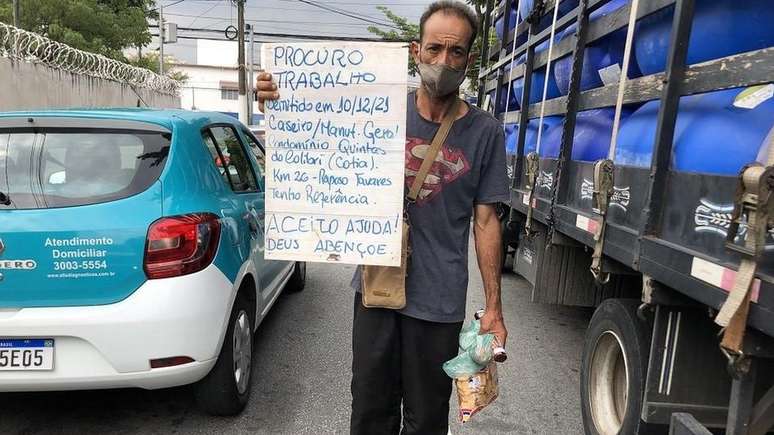 PROCURO
TRABALHO
Demitido em 10/12/21
Caseiro/Manut. Geral
Condomínio Quintas
do Colibri (Cotia).
Km 26 - Raposo Tavares
Tenho Referência.
ACEITO AJUDA!
DEUS ABENÇOE.
Atendimento
Domiciliar
3003-5554
BRASIL
5E05